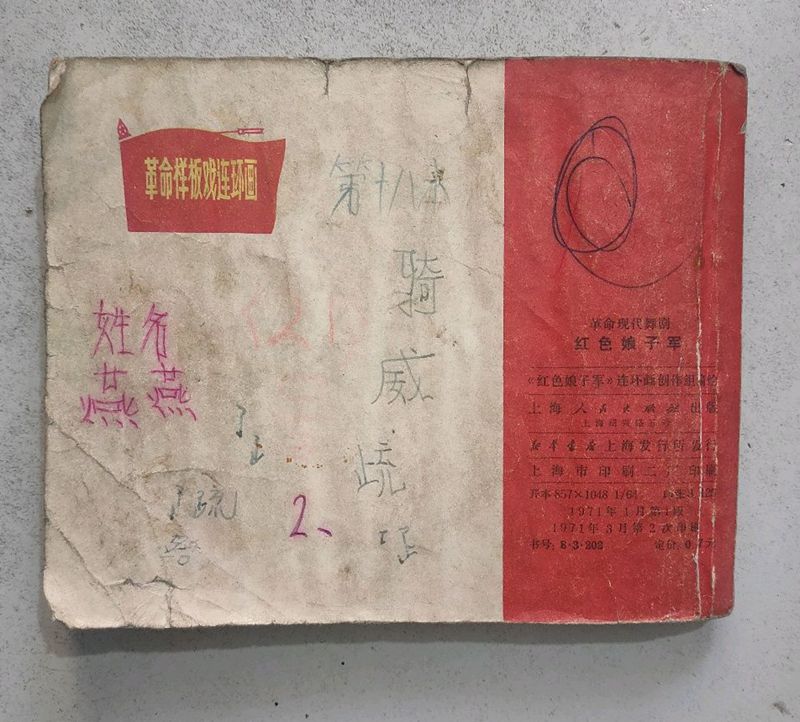 革命样板戏连环画
第十八
骑
威
疏
姓名
燕燕
2、
革命现代舞剧
红色娘子军
《红色娘子军》连环画创作组编绘
上海人民出版社出版
新华书店上海发行所发行
上海市印刷二厂印刷
开本857×1048 1/64
1971年1月第1版
1971年3月第2次印刷
书号: 8·3·202
定价: